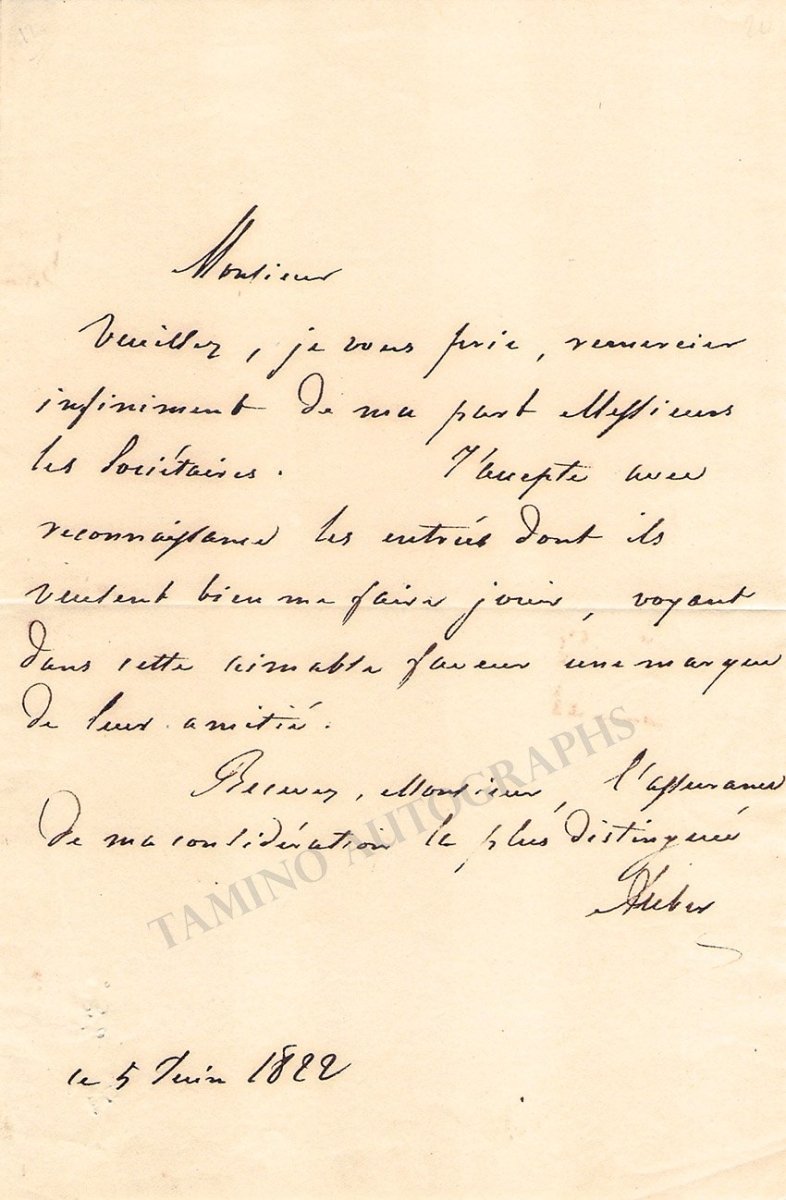 Monsieur
Veuillez, je vous prie, remercier
infiniment de ma part Messieurs
les Sociétaires. J'accepte avec
reconnaissance les entrées dont ils
veulent bien me faire jouir, voyant
dans cette aimable faveur une marque
de leur amitié.
Recevez, Monsieur, l'assurance
de ma considération la plus distinguée
Auber
TAMINO AUTOGRAPHS
le 5 Juin 1822